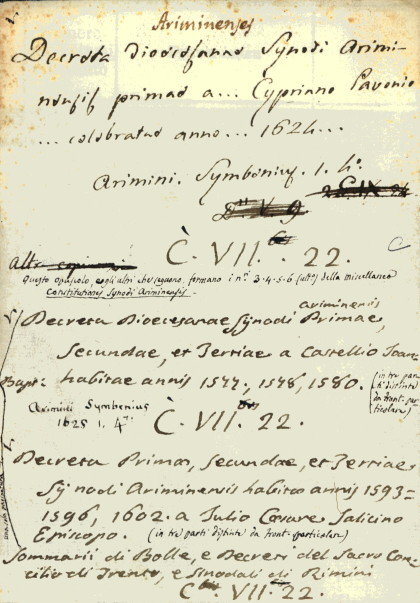 1.
Ariminenses
Decreta Dioecesanae Synodi Arimi-
nensis primae a... Cypriano Pavonio
... celebratae anno... 1624...
Arimini. Symbenius. 1. 4°.
C. IX. 24
D. V. 9.
C. VII. 22.
altra copia
questo opuscolo, e gli altri che seguono, formano i nⁱ 3.4.5.6 (ult°) della miscellanea
Constitutiones Synodi Ariminensis.
ariminensis
Decreta Dioecesanae Synodi Primae,
Secundae, et Tertiae a Castellio Joan:
Bapt: habitae annis 1577, 1578, 1580. (in tre par
ti distinte
da front. par
ticolare)
Arimini Symbenius
1625 1. 4°
C. VII. 22.
Decreta Primae, Secundae, et Tertiae
Synodi Ariminensis habitae annis 1593=
1596, 1602. a Julio Caesare Salicino
Episcopo. (in tre parti distinte da front. particolare)
Sommarii di Bolle, e Decreti del Sacro Con-
cilio di Trento, e Sinodali di Rimini
C. VII. 22